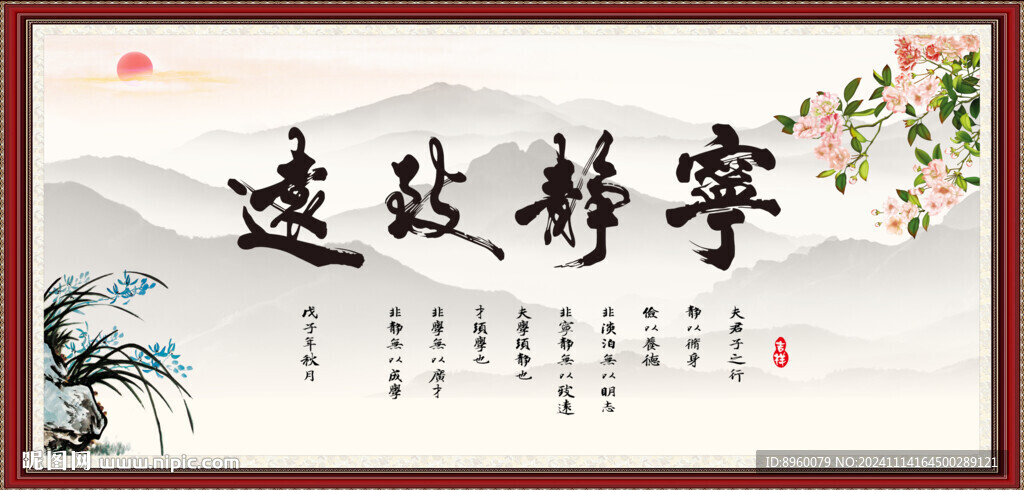 寧靜致遠
夫君子之行
靜以脩身
儉以養德
非澹泊無以明志
非寧靜無以致遠
夫學須靜也
才須學也
非學無以廣才
非靜無以成學
戊子年秋月
吉祥
昵图网 www.nipic.com
ID:8960079 NO:20241114164500289121